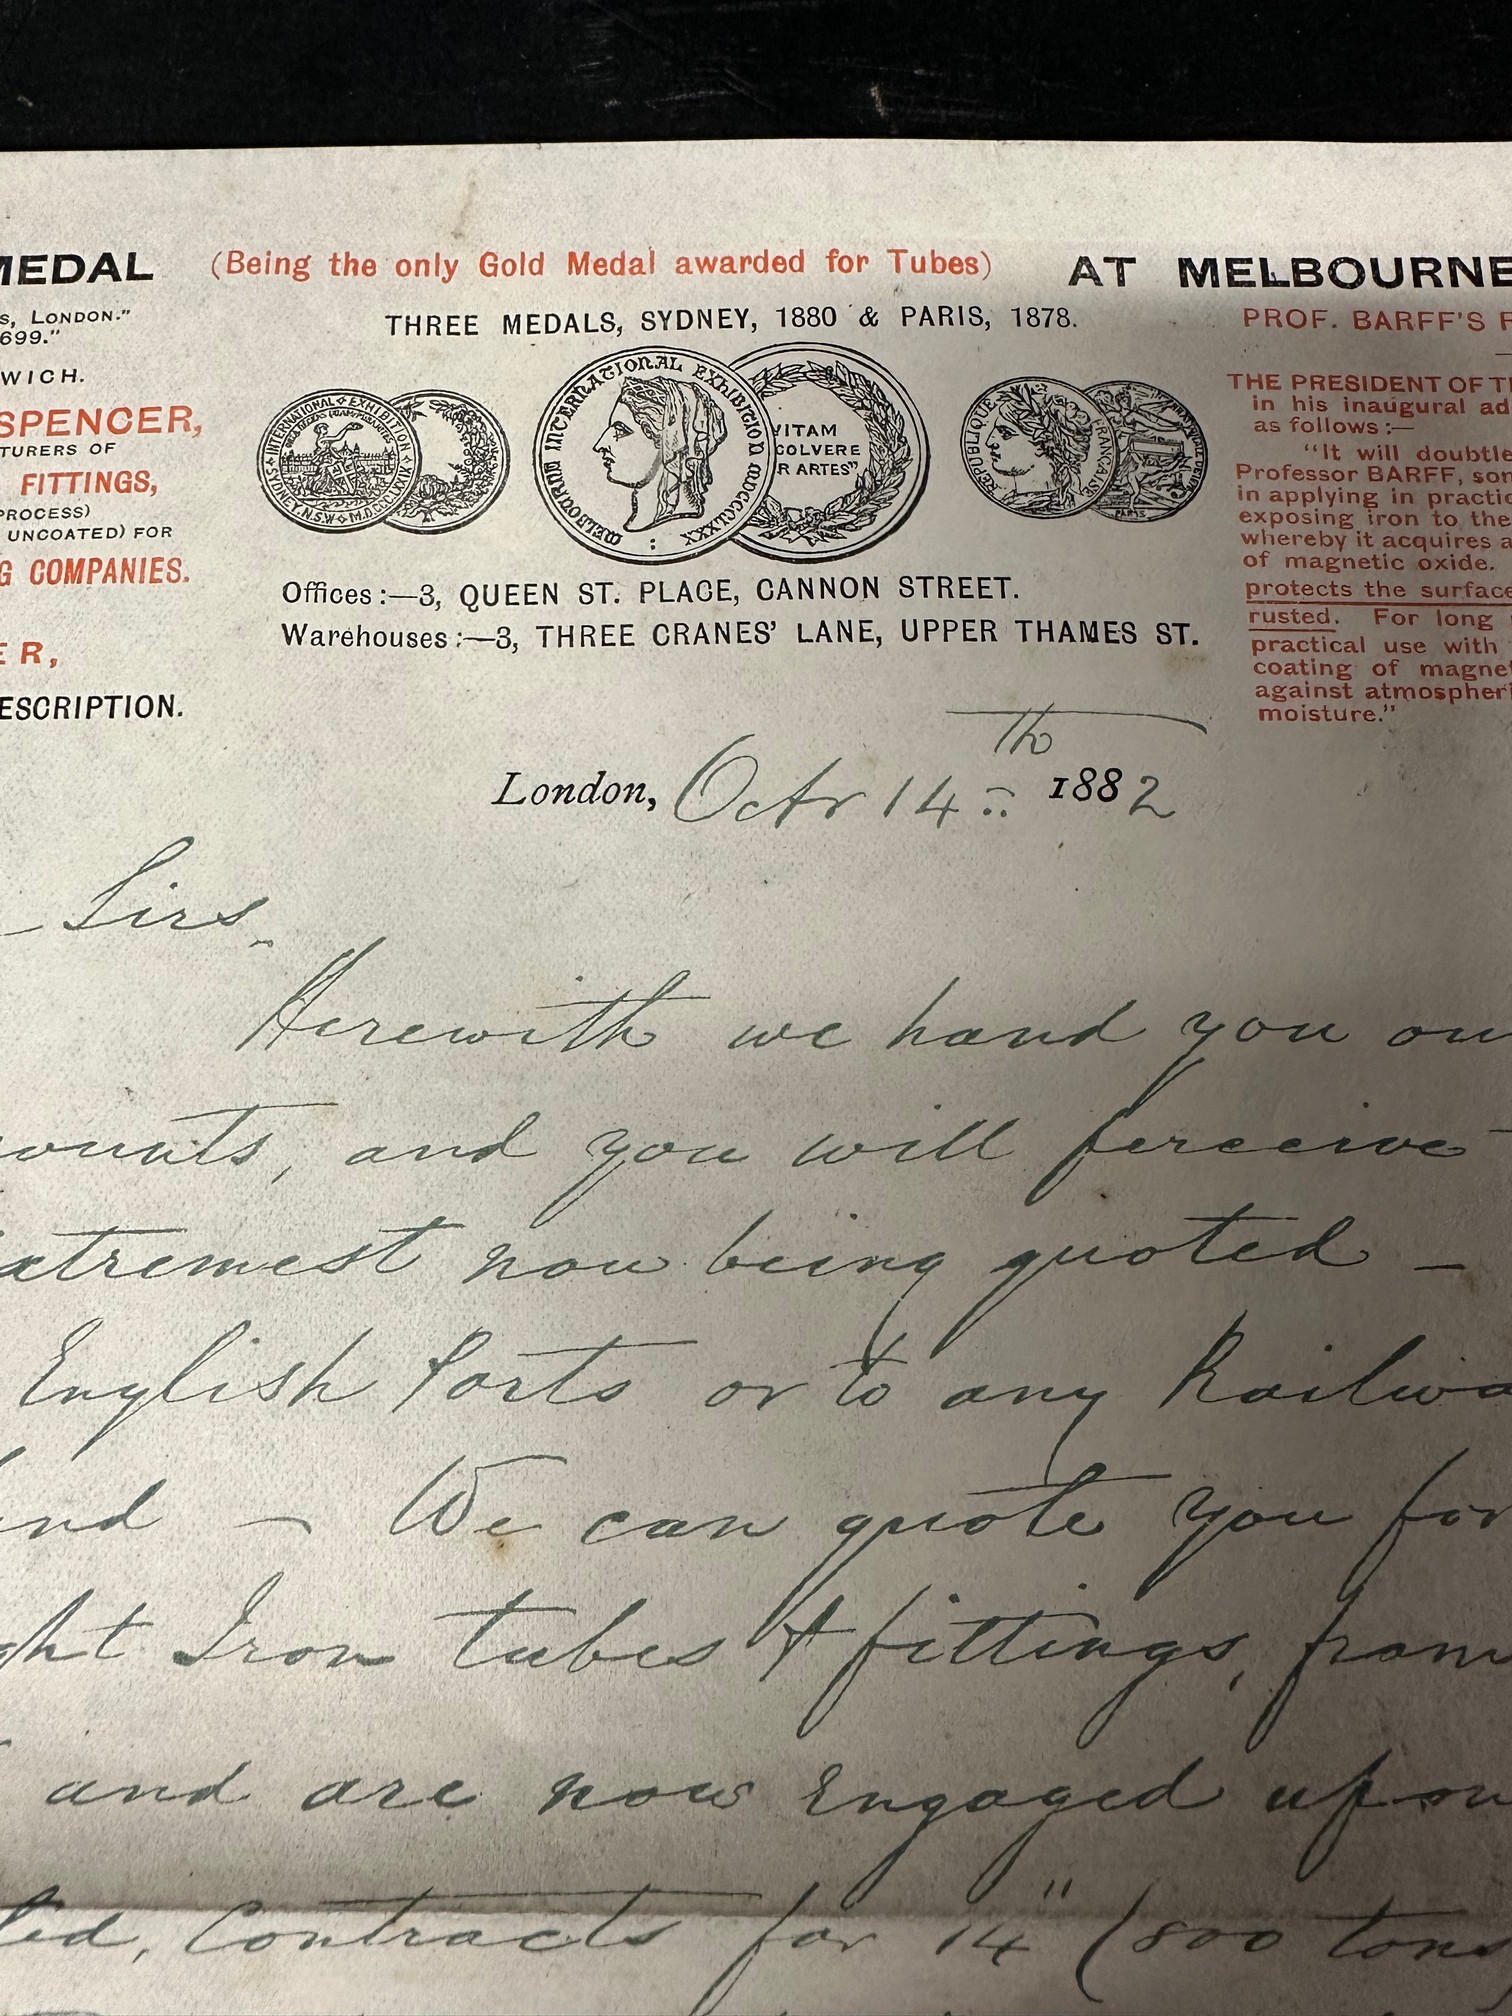 MEDAL (Being the only Gold Medal awarded for Tubes) AT MELBOURNE
THREE MEDALS, SYDNEY, 1880 & PARIS, 1878.
S, LONDON."
699."
WICH.
SPENCER,
TURERS OF
FITTINGS,
PROCESS)
UNCOATED) FOR
G COMPANIES.
ER,
ESCRIPTION.
INTERNATIONAL EXHIBITION
SYDNEY N.S.W
MELBOURNE INTERNATIONAL EXHIBITION MDCCCLXXX
VITAM
COLVERE
R ARTES"
REPUBLIQUE FRANCAISE
PARIS
Offices:—3, QUEEN ST. PLACE, CANNON STREET.
Warehouses:—3, THREE CRANES' LANE, UPPER THAMES ST.
PROF. BARFF'S
THE PRESIDENT OF T
in his inaugural ad
as follows:—
"It will doubtle
Professor BARFF, som
in applying in practic
exposing iron to the
whereby it acquires a
of magnetic oxide.
protects the surface
rusted. For long
practical use with
coating of magnet
against atmospheri
moisture."
London, Octr 14th 1882
Sirs
Herewith we hand you our
ounts, and you will perceive
extremest now being quoted —
English Ports or to any Railwa
and — We can quote you for
ght Iron tubes & fittings, from
and are now Engaged upon
ted, Contracts for 14" (800 tons